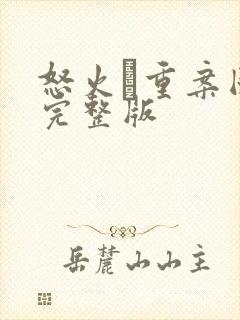 怒火重案
完整版
岳麓山山主